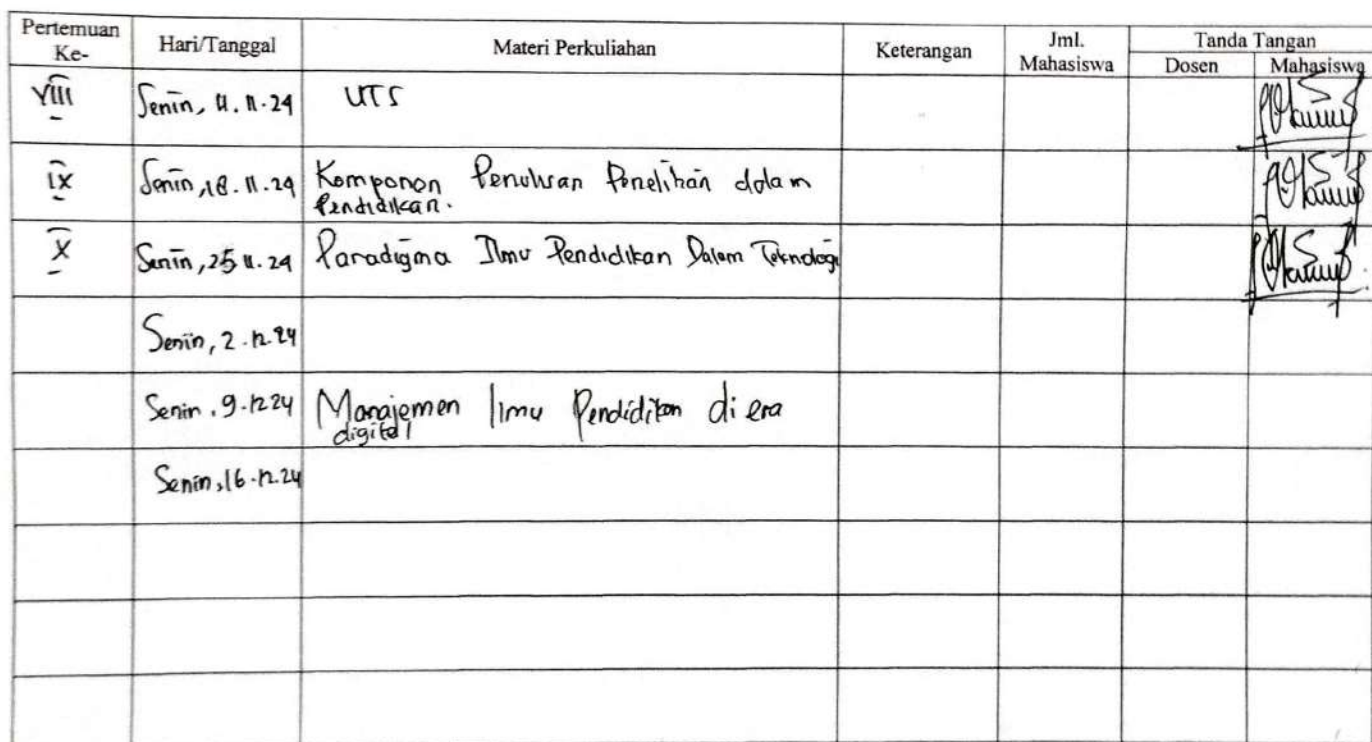 Pertemuan Ke- Hari/Tanggal Materi Perkuliahan Keterangan Jml. Mahasiswa Tanda Tangan
Dosen Mahasiswa
VIII Senin, 11.11.24 UTS
IX Senin, 18.11.24 Komponen Penulisan Penelitian dalam
Pendidikan.
X Senin, 25.11.24 Paradigma Ilmu Pendidikan Dalam Teknologi
Senin, 2.12.24
Senin, 9.12.24 Manajemen Ilmu Pendidikan di era
digital
Senin, 16.12.24